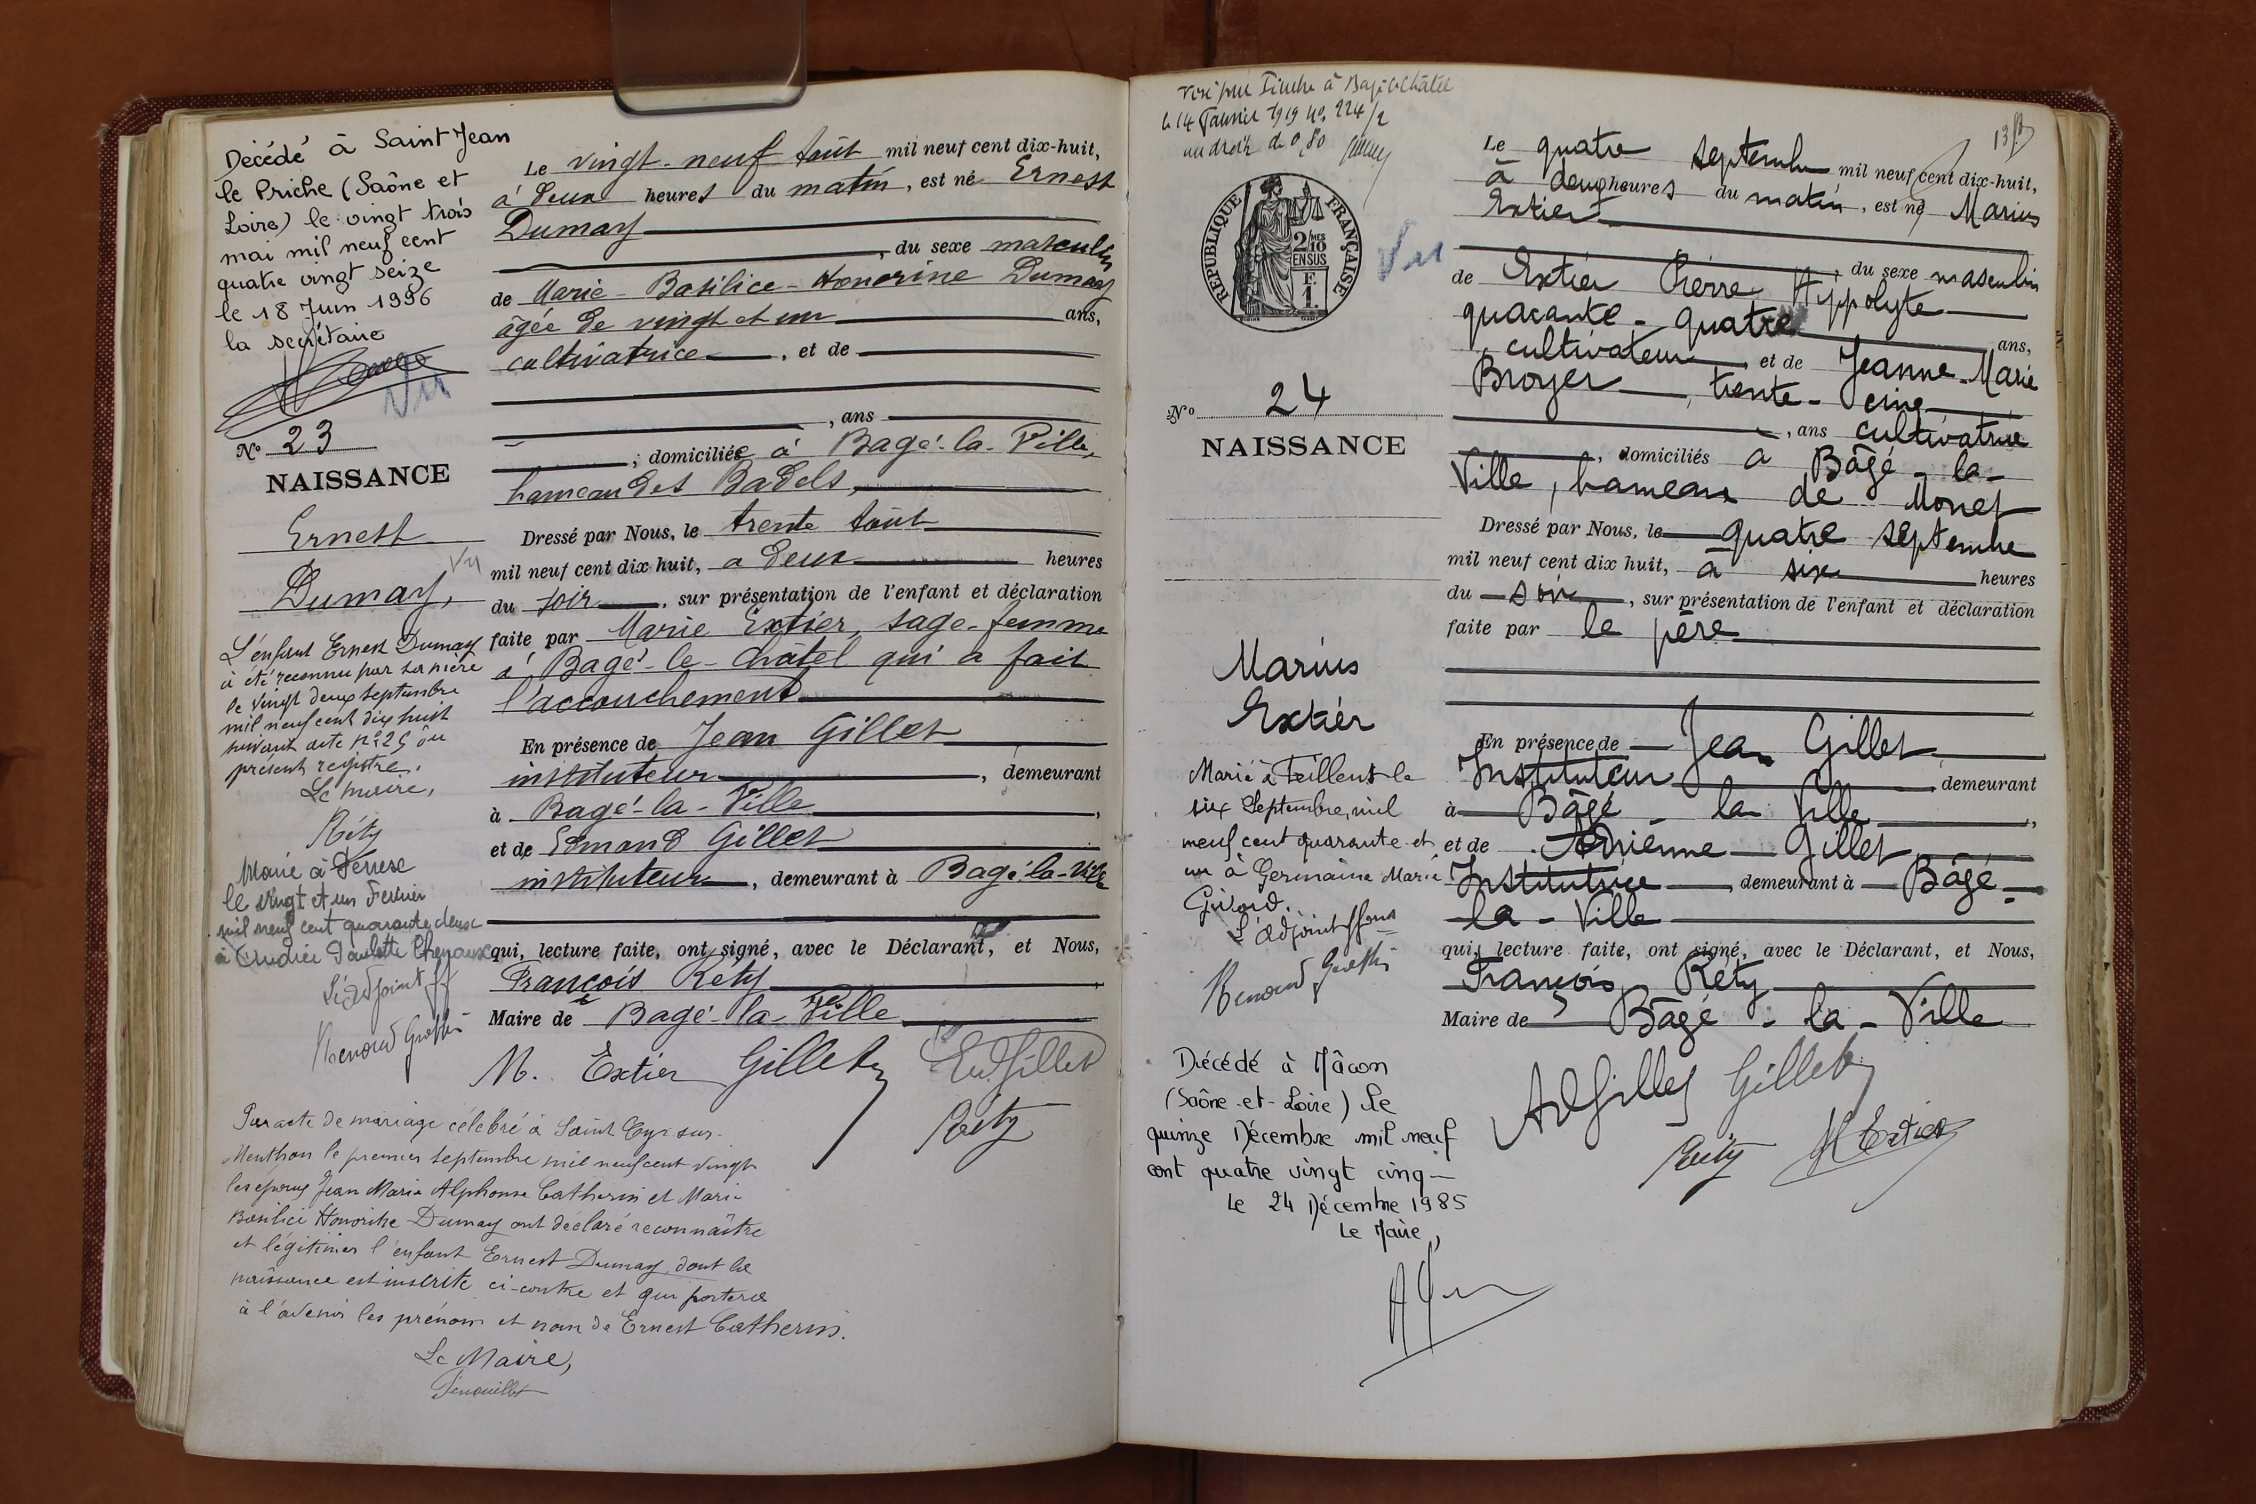 Décédé à Saint Jean
le Priche (Saône et
Loire) le vingt trois
mai mil neuf cent
quatre vingt seize
le 18 Juin 1996
la secrétaire
Vu
No 23
NAISSANCE
Ernest
Vu
Dumay,
L'enfant Ernest Dumay
a été reconnu par sa mère
le vingt deux septembre
mil neuf cent dix huit
suivant acte no 25 du
présent registre.
Le maire,
Réty
Marié à
le vingt et un Février
mil neuf cent quarante deux
à Andrée Paulette
L'adjoint ff
Le vingt-neuf Août mil neuf cent dix-huit,
à deux heures du matin, est né Ernest
Dumay
, du sexe masculin
de Marie-Basilice-Honorine Dumay
âgée de vingt et un ans,
cultivatrice, et de
, ans
, domiciliée à Bagé-la-Ville,
hameau des Badels,
Dressé par Nous, le trente Août
mil neuf cent dix huit, a deux heures
du soir, sur présentation de l'enfant et déclaration
faite par Marie Extier, sage-femme
à Bagé-le-Châtel qui a fait
l'accouchement
En présence de Jean Gillet
instituteur, demeurant
à Bagé-la-Ville,
et de Edmond Gillet
instituteur, demeurant à Bagé-la-Ville
qui, lecture faite, ont signé, avec le Déclarant, et Nous,
François Réty
Maire de Bagé-la-Ville
M. Extier Gillet Ed Gillet
Réty
Par acte de mariage célébré à Saint Cyr sur
Menthon le premier septembre mil neuf cent vingt
les époux Jean Marie Alphonse Catherin et Marie
Basilice Honorine Dumay ont déclaré reconnaître
et légitimer l'enfant Ernest Dumay dont la
naissance est inscrite ci-contre et qui portera
à l'avenir les prénom et nom de Ernest Catherin.
Le Maire,
Visé pour Timbre à Bagé le Châtel
le 14 Janvier 1919 No 224/2
un droit de 0,80
RÉPUBLIQUE FRANÇAISE
2/10
EN SUS
Vu
No 24
NAISSANCE
Marius
Extier
Marié à Feillens le
six Septembre, mil
neuf cent quarante et
un à Germaine Marie
Giroud.
L'adjoint ff
Décédé à Mâcon
(Saône-et-Loire) le
quinze Décembre mil neuf
cent quatre vingt cinq
Le 24 Décembre 1985
Le Maire,
Le quatre septembre mil neuf cent dix-huit,
à deux heures du matin, est né Marius
Extier
, du sexe masculin
de Extier Pierre Hippolyte
quarante-quatre ans,
cultivateur et de Jeanne-Marie
Broyer, trente-cinq
, ans cultivatrice
, domiciliés à Bâgé-la-
Ville, hameau de Monet
Dressé par Nous, le quatre septembre
mil neuf cent dix huit, à six heures
du soir, sur présentation de l'enfant et déclaration
faite par le père
En présence de Jean Gillet
Instituteur, demeurant
à Bâgé-la-Ville,
et de Adrienne Gillet
Institutrice, demeurant à Bâgé-
la-Ville
qui, lecture faite, ont signé, avec le Déclarant, et Nous,
François Réty
Maire de Bâgé-la-Ville
Gillet
Réty H Extier